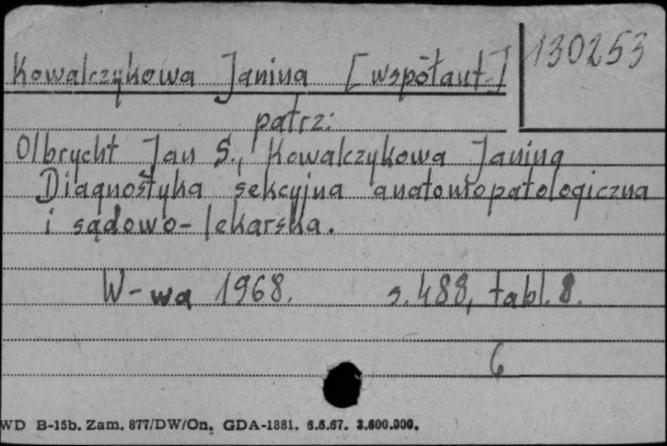 130253
Kowalczykowa Janina [współaut.]
patrz:
Olbrycht Jan S., Kowalczykowa Janina
Diagnostyka sekcyjna anatomopatologiczna
i sądowo-lekarska.
W-wa 1968. s. 488, tabl. 8.
6
WD B-15b. Zam. 877/DW/On. GDA-1881. 6.6.67. 3.600.000.